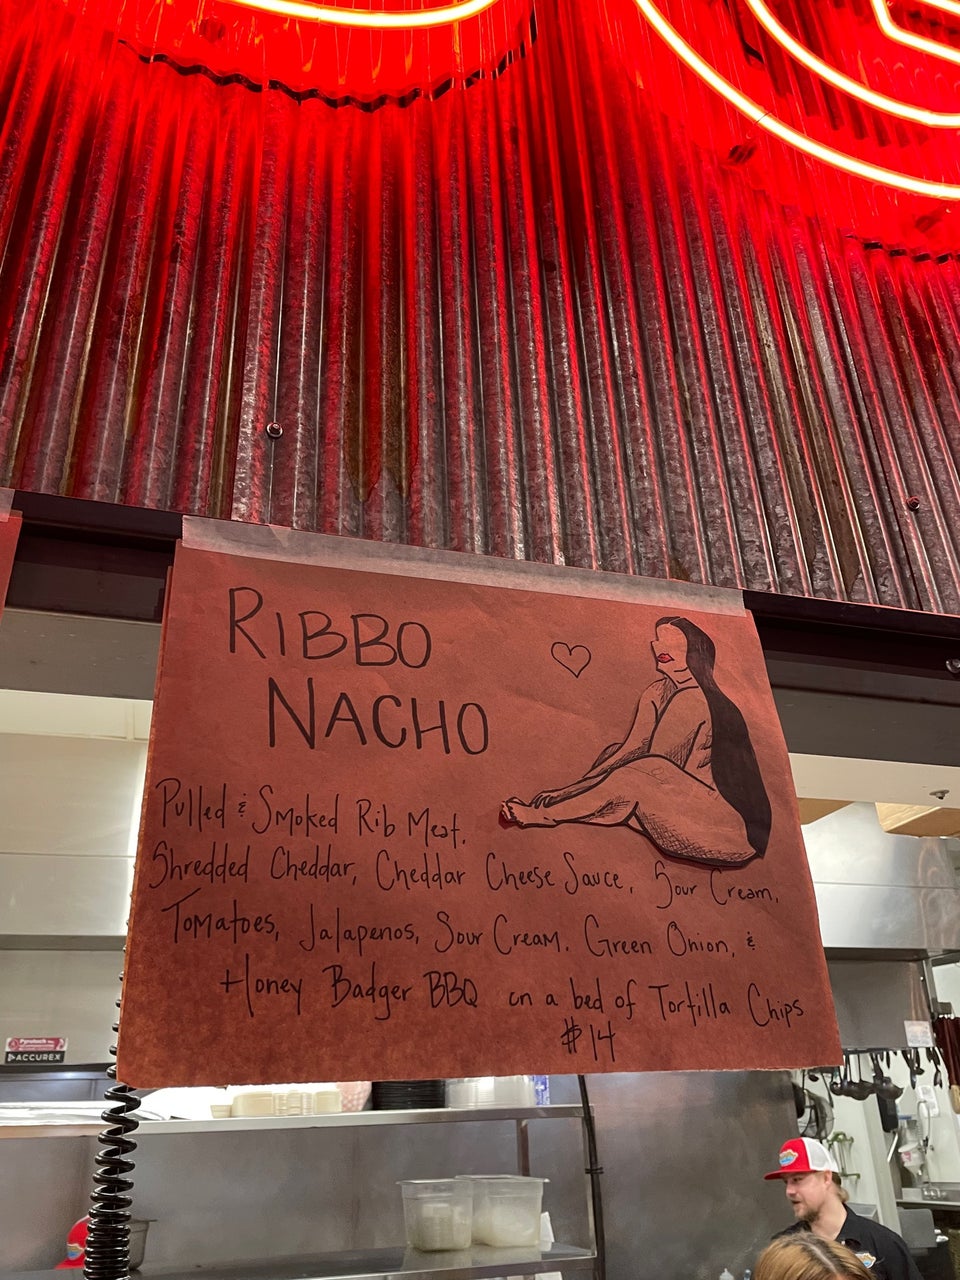 RIBBO
NACHO
Pulled & Smoked Rib Meat,
Shredded Cheddar, Cheddar Cheese Sauce, Sour Cream,
Tomatoes, Jalapenos, Sour Cream, Green Onion, &
Honey Badger BBQ on a bed of Tortilla Chips
$14
ACCUREX